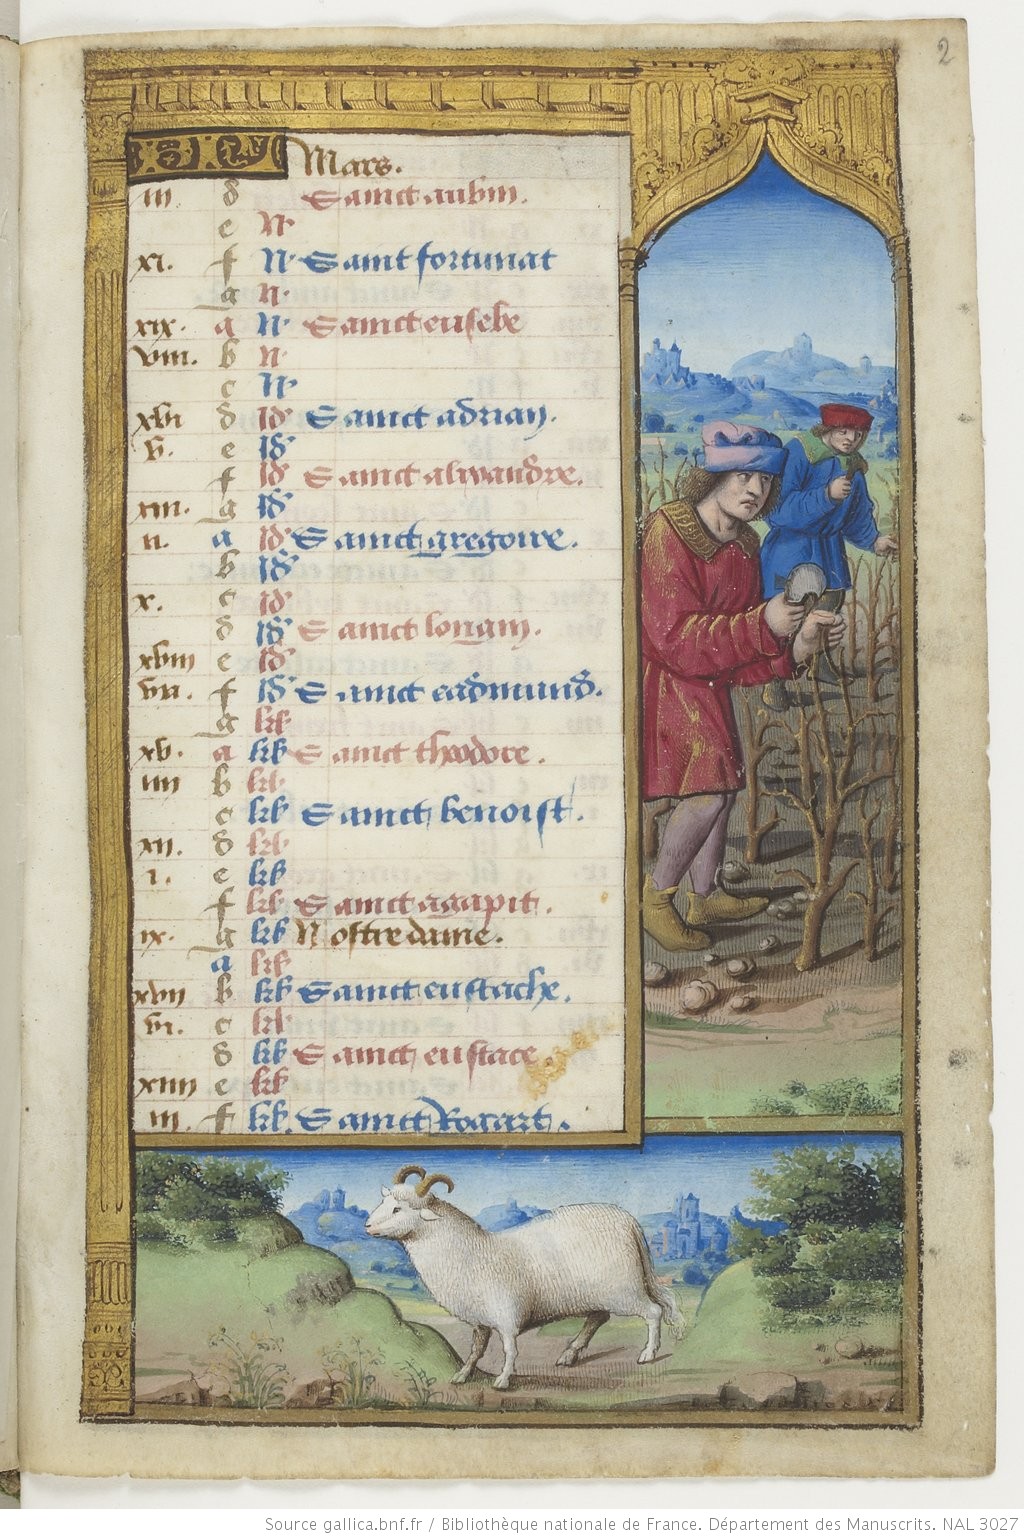 2
KL Mars.
iii d Sainct aubin.
e N.
xi. f N. Sainct fortunat
g N.
xix. a N. Sainct eusebe
viii. b N.
c N.
xvi d Id Sainct adrian.
v. e Id
f Id Sainct alixandre.
xiii. g Id
ii. a Id Sainct gregoire.
b Id
x. c Id
d Id Sainct longin.
xviii e Id
vii. f Id Sainct eadmund.
g kl
xv. a kl Sainct theodore.
iiii b kl
c kl Sainct benoist.
xii. d kl
i. e kl
f kl Sainct agapit.
ix. g kl Nostre dame.
a kl
xvii b kl Sainct eustache.
vi. c kl
d kl Sainct eustace.
xiiii e kl
iii. f kl. Sainct Rogart.
Source gallica.bnf.fr / Bibliothèque nationale de France. Département des Manuscrits. NAL 3027